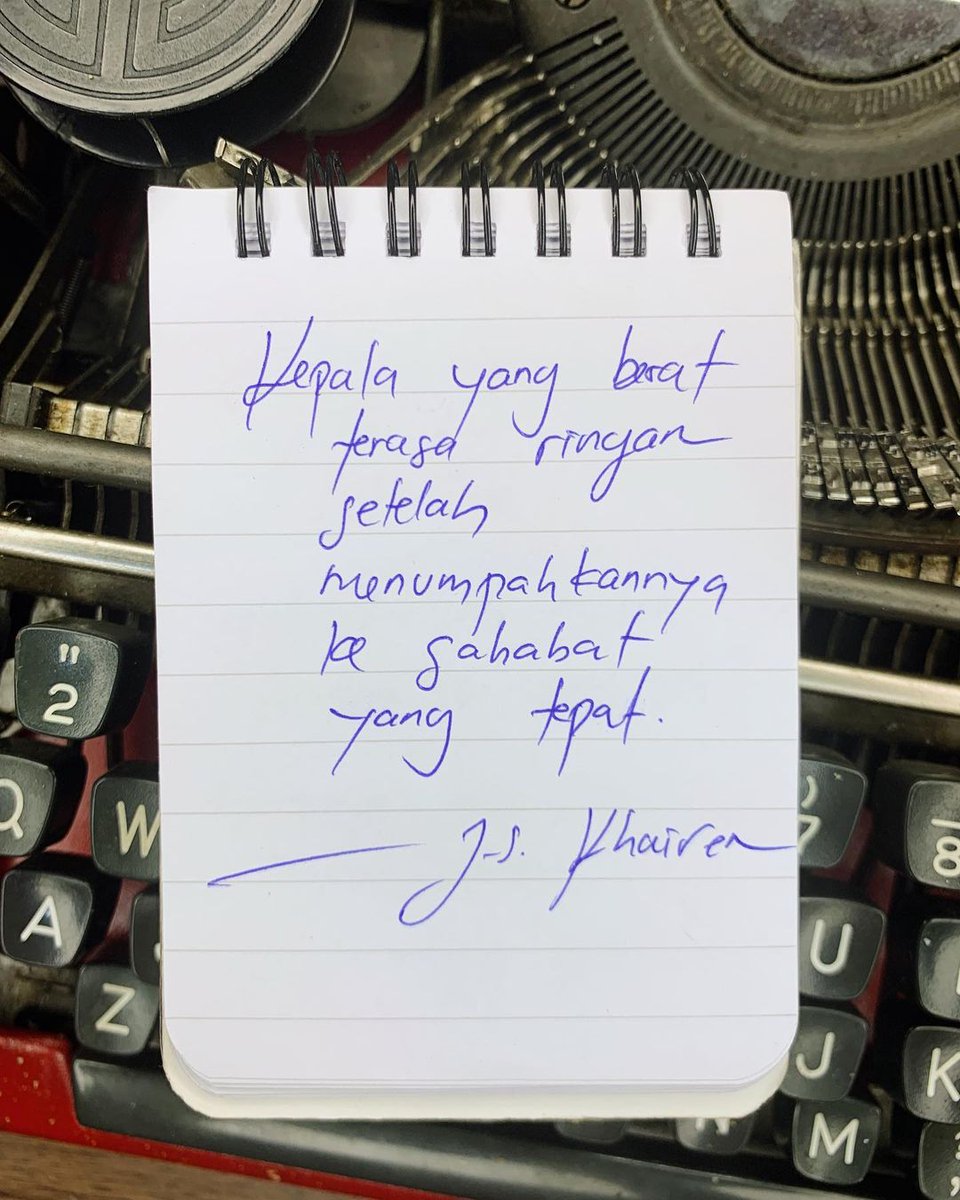 Kepala yang berat
terasa ringan
setelah
menumpahkannya
ke sahabat
yang tepat.
J.S. Khairen
" 2
Q W ) 7 8
A U
Z J K
N M